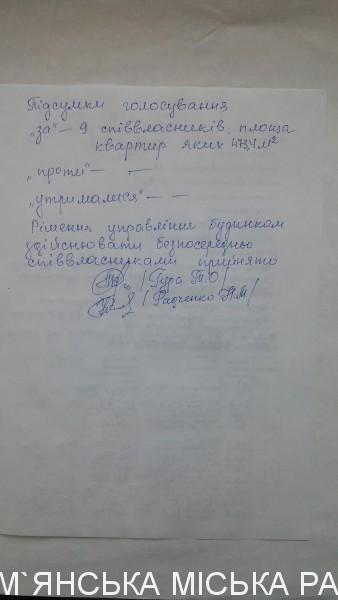 Підсумки голосування
„за" — 9 співвласників, площа
квартир яких 473,4 м²
„проти" — —
„утрималися" — —
Рішення управління будинком
здійснювати безпосередньо
співвласниками прийнято
/ Гура Т.О /
/ Радченко Н.М /
М`ЯНСЬКА МІСЬКА РА